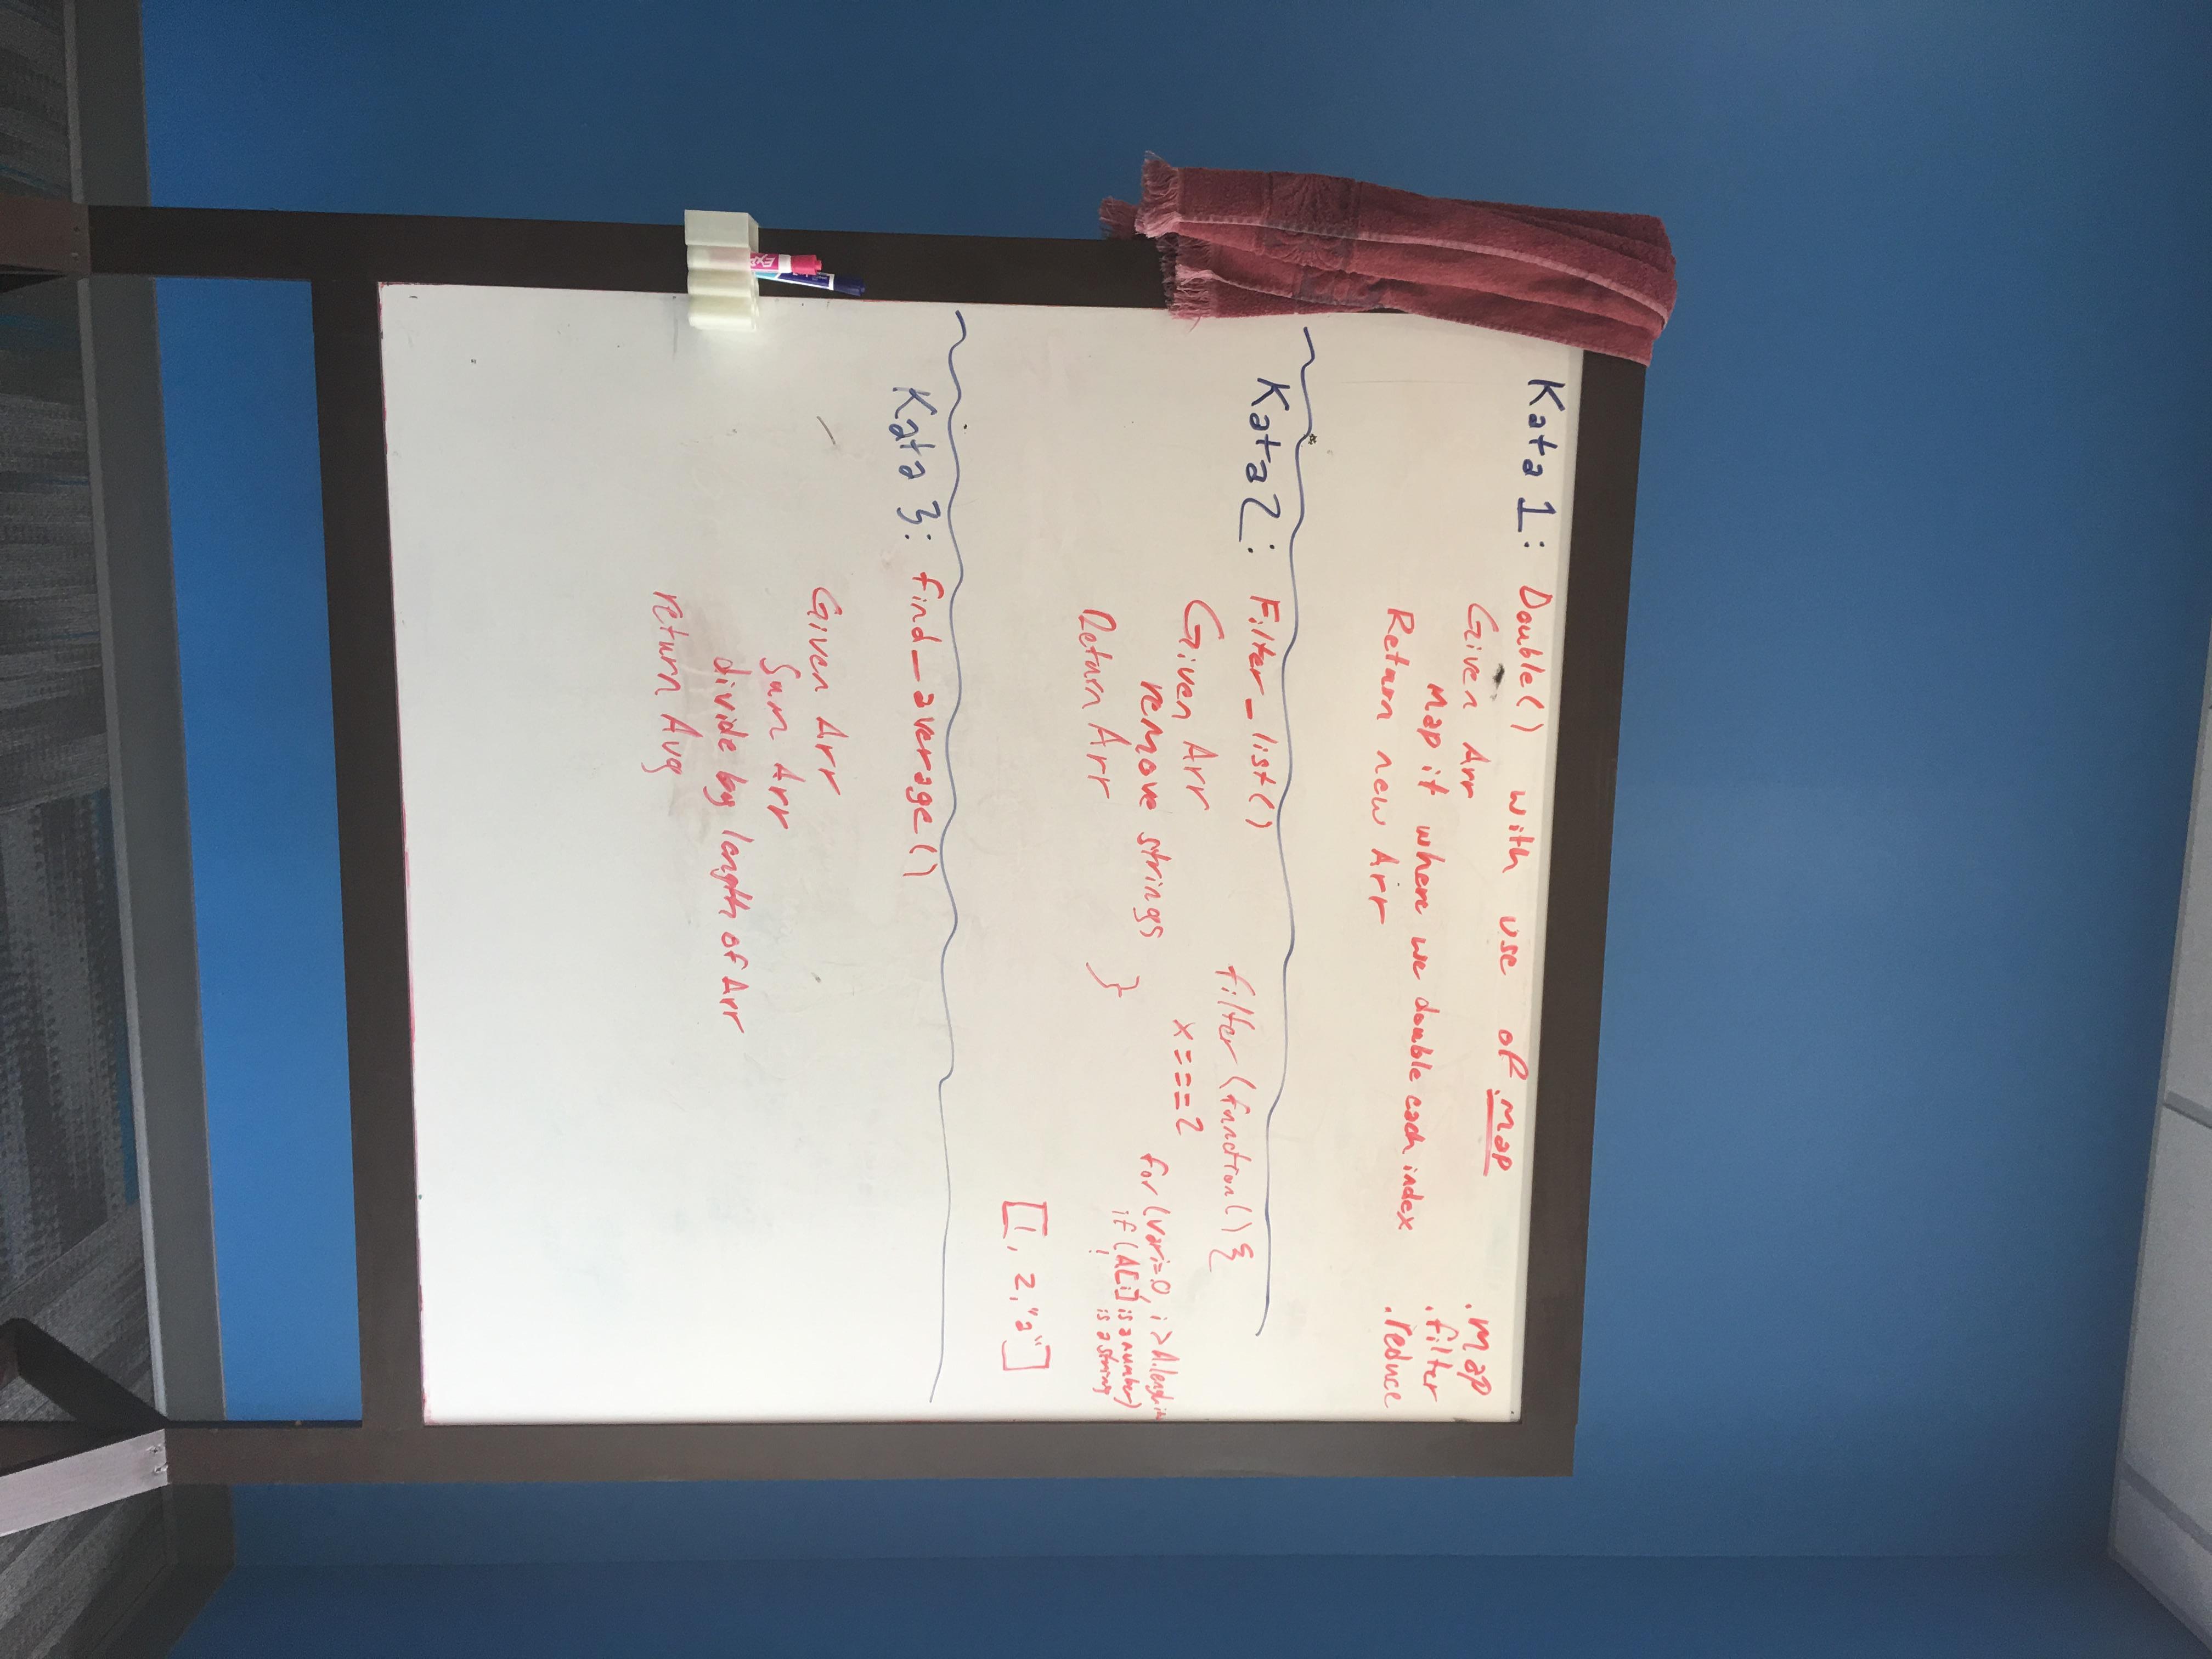 Kata 1: Double() with use of .map
Given Arr
Map it where we double each index
Return new Arr
.map
.filter
.reduce
Kata 2: Filter_list()
Given Arr
remove strings
Return Arr
filter (function() {
x === 2
}
for (var i=0, i > A.length
if (A[i] is a number)
is a string
[1, 2, "a"]
Kata 3: find_average()
Given Arr
Sum Arr
divide by length of Arr
return Avg